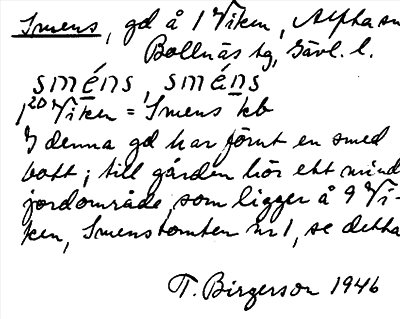 Smens, gd å 1 Viken, Alfta sn
Bollnäs tg, Gävl. l.
sméns, sméns
1 20 Viken = Smens kb
I denna gd har förut en smed
bott; till gården hör ett mind
jordområde, som ligger å 9 Vi-
ken, Smenstomten nr 1, se detta
T. Birgerson 1946